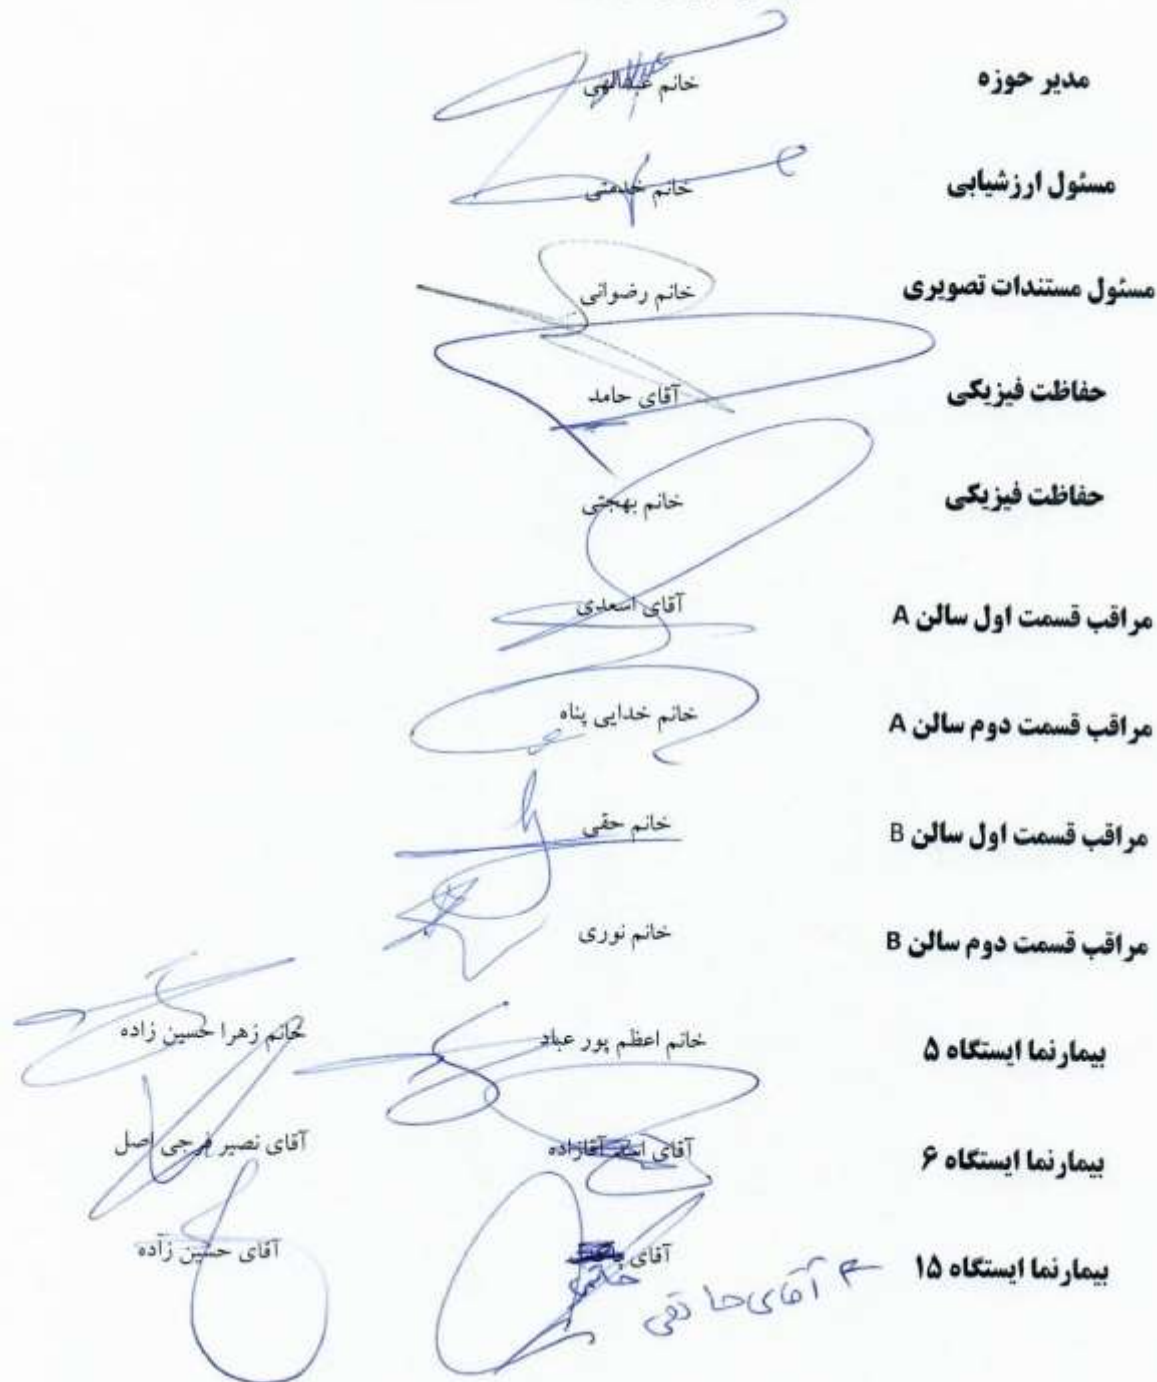 مدیر حوزه خانم عبدالهی
مسئول ارزشیابی خانم خدمتی
مسئول مستندات تصویری خانم رضوانی
حفاظت فیزیکی آقای حامد
حفاظت فیزیکی خانم بهجتی
مراقب قسمت اول سالن A آقای اسعدی
مراقب قسمت دوم سالن A خانم خدایی پناه
مراقب قسمت اول سالن B خانم حقی
مراقب قسمت دوم سالن B خانم نوری
بیمارنما ایستگاه ۵ خانم اعظم پور عباد خانم زهرا حسین زاده
بیمارنما ایستگاه ۶ آقای آقازاده آقای نصیر فرجی اصل
بیمارنما ایستگاه ۱۵ آقای آقای حسین زاده
آقای